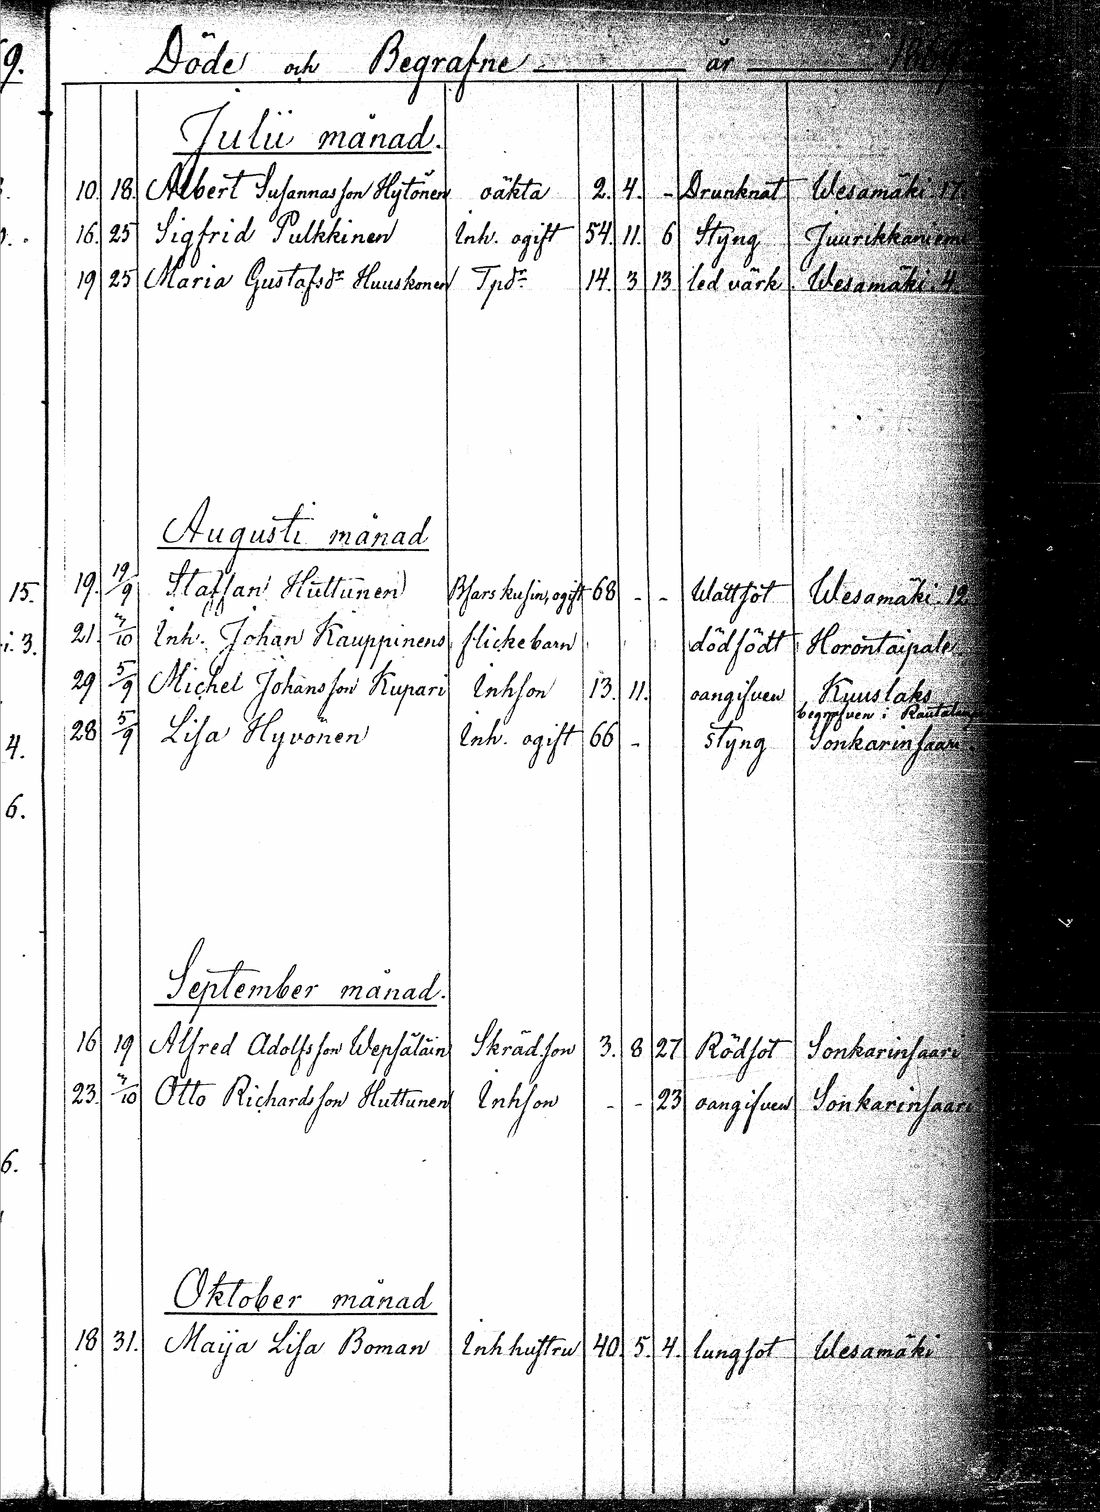 9. Döde och Begrafne år
Julii månad.
10. 18. Albert Susannasson Hytönen oäkta 2. 4. - Drunknat Wesamäki 17
16. 25 Sigfrid Pulkkinen Inh. ogift 54. 11. 6 Styng Juurikkaniemi
19 25 Maria Gustafsdr Huuskonen Tpdr 14. 3 13 led värk Wesamäki 4.
Augusti månad
15. 19. 19/9 Staffan Huttunen Bfars kusin, ogift 68 - - Wattsot Wesamäki 12
i. 3. 21. 7/10 Inh. Johan Kauppinens flickebarn dödfödt Horontaipale
29 5/9 Michel Johansson Kupari Inhson 13. 11. oangifven Kuuslaks
begrafven i
4. 28 5/9 Lisa Hyvönen Inh. ogift 66 - Styng Sonkarinsaari
6.
September månad.
16 19 Alfred Adolfsson Wepsäläin Skrädson 3. 8 27 Rödsot Sonkarinsaari
23. 7/10 Otto Richardsson Huttunen Inhson - - 23 oangifven Sonkarinsaari
6.
Oktober månad
18 31. Maija Lisa Boman Inhhustru 40. 5. 4. lungsot Wesamäki